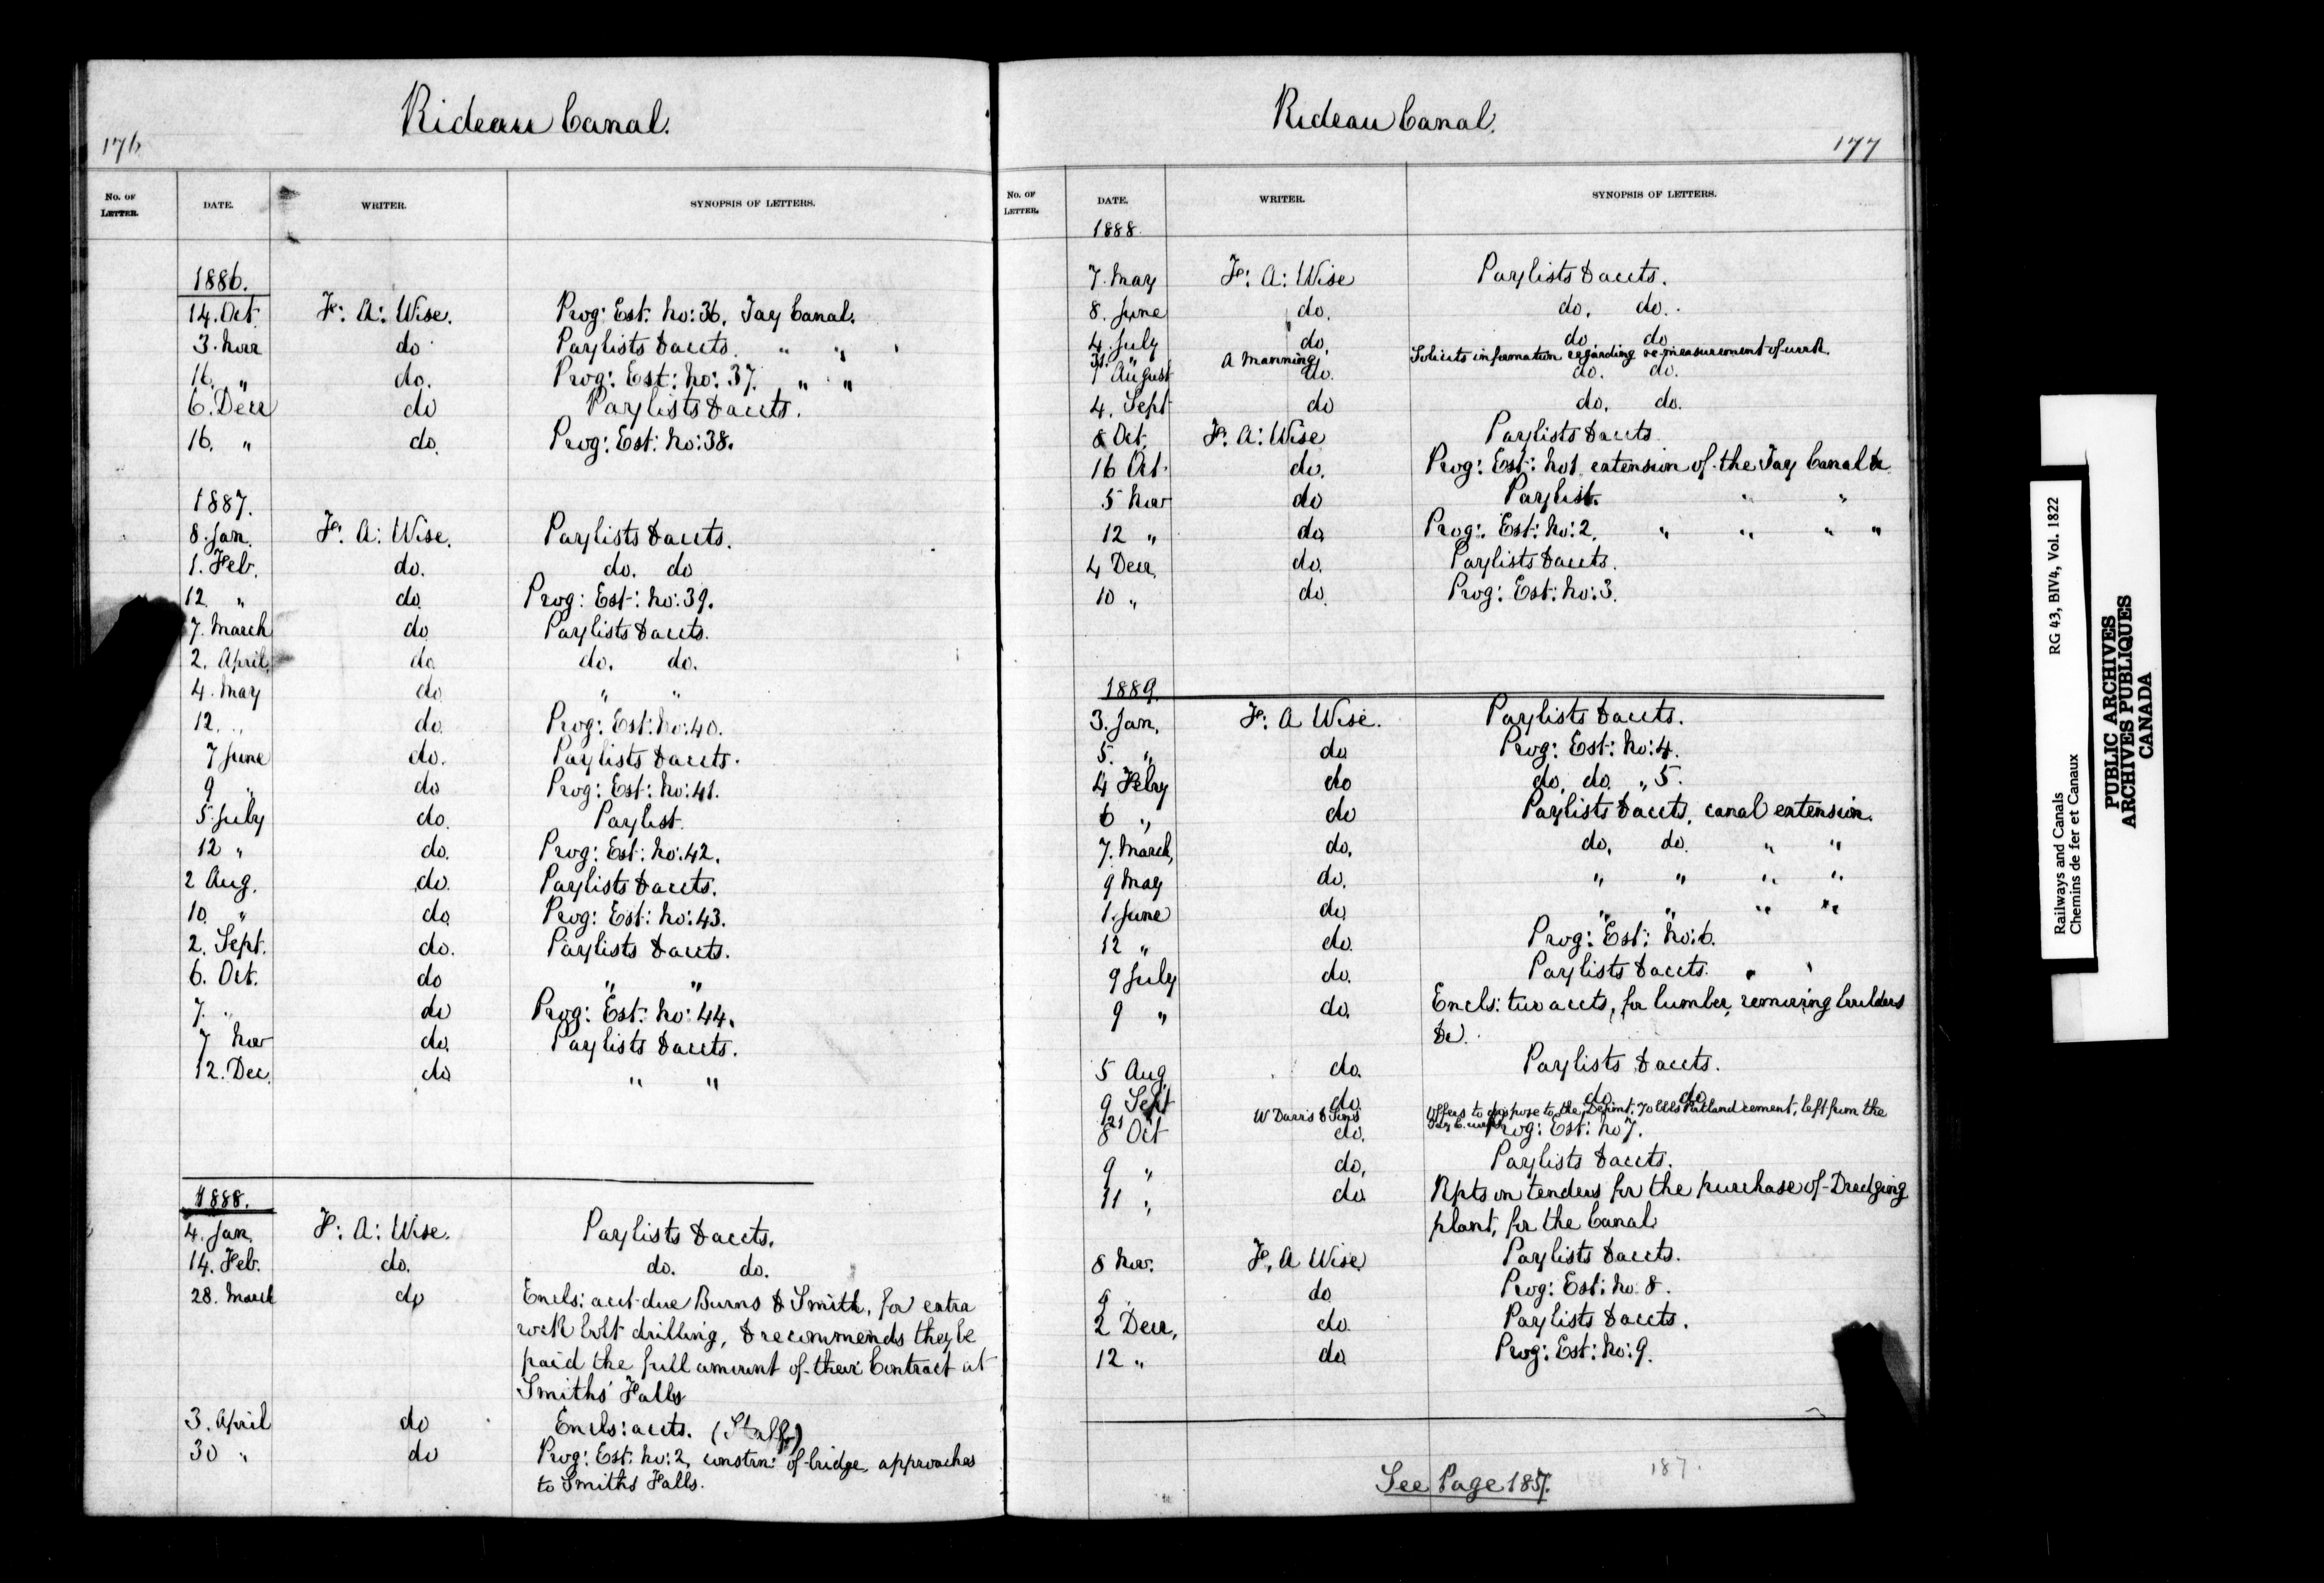 Rideau Canal.
176
No. of Letter. DATE. WRITER. SYNOPSIS OF LETTERS.
1886.
14. Oct. F: A: Wise. Prog: Est: No: 36, Tay Canal.
3. Novr do Paylists & accts. " "
16. " do. Prog: Est: No: 37. " "
6. Decr do Paylists & accts.
16. " do. Prog: Est: No: 38.
1887.
8. Jan. F: A: Wise. Paylists & accts.
1. Feb. do. do. do
12. " do. Prog: Est: No: 39.
7. March do Paylists & accts.
2. April. do. do. do.
4. May do " "
12. " do. Prog: Est: No: 40.
7 June do. Paylists & accts.
9 " do Prog: Est: No: 41.
5. July do. Paylist.
12 " do. Prog: Est: No: 42.
2 Aug. do. Paylists & accts.
10. " do. Prog: Est: No: 43.
2. Sept. do. Paylists & accts.
6. Oct. do " "
7. " do Prog: Est: No: 44.
7 Nov do. Paylists & accts.
12. Dec. do " "
1888.
4. Jan. F: A: Wise. Paylists & accts.
14. Feb. do. do. do.
28. March do Encls: acct due Burns & Smith, for extra
rock bolt drilling, & recommends they be
paid the full amount of their Contract at
Smiths' Falls
3. April do Encls: accts. (Staff)
30 " do Prog: Est: No: 2, constrn: of bridge, approaches
to Smiths Falls.
Rideau Canal.
177
No. of Letter. DATE. WRITER. SYNOPSIS OF LETTERS.
1888.
7. May F: A: Wise Paylists & accts.
8. June do. do. do.
4. July do. do do
31. " A Manning Solicits information regarding re-measurement of work.
1 August do. do. do.
4. Sept do do. do.
8 Oct. F: A: Wise Paylists & accts
16 Oct. do. Prog: Est: No 1. extension of the Tay Canal &c
5 Nov do Paylist. " "
12 " do. Prog: Est: No: 2. " " " "
4 Decr. do. Paylists & accts.
10 " do. Prog: Est: No: 3.
1889.
3. Jan. F: A Wise. Paylists & accts.
5. " do. Prog: Est: No: 4.
4 Feby do do. do. " 5.
6 " do Paylists & accts, canal extension.
7. March, do. do. do. " "
9 May do. " " " "
1. June do. " " " "
12 " do. Prog: Est: No: 6.
9 July do. Paylists & accts. " "
9 " do. Encls: two accts, for lumber, removing boulders
&c.
5 Aug. do. Paylists & accts.
9 Sept do. do do
21 W Davis & Sons Offers to dispose to the Depmt. 70 bbls Portland cement, left from the
Tay C. works
8 Oct do. Prog: Est: No 7.
9 " do. Paylists & accts.
11 " do. Rpts on tenders for the purchase of Dredging
plant, for the Canal
8 Nov. F, A Wise. Paylists & accts.
9 " do. Prog: Est: No. 8.
2 Decr, do. Paylists & accts.
12 " do. Prog: Est: No: 9.
See Page 187.
187.
Railways and Canals RG 43, BIV4, Vol. 1822
Chemins de fer et Canaux
PUBLIC ARCHIVES
ARCHIVES PUBLIQUES
CANADA